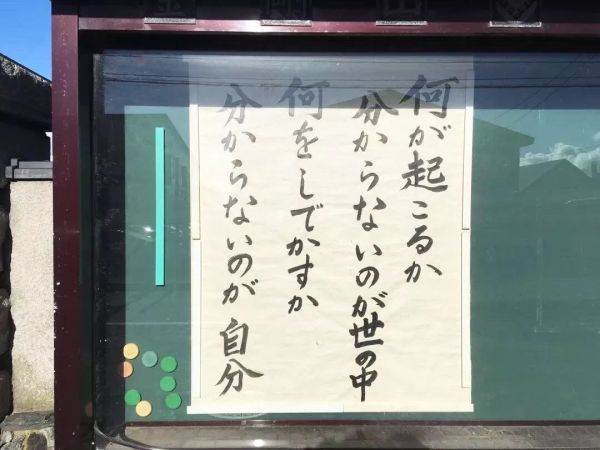 金剛山
何が起こるか
分からないのが世の中
何をしでかすか
分からないのが 自分